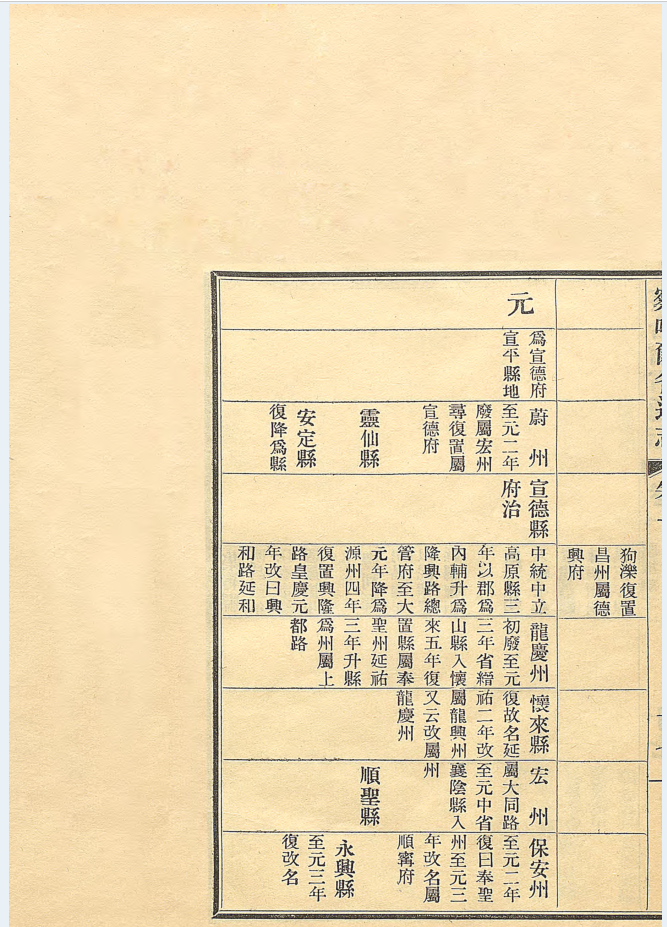 狗濼復置
昌州屬德
興府
元
爲宣德府
宣平縣地
蔚州
至元二年
廢屬宏州
尋復置屬
宣德府
靈仙縣
安定縣
復降爲縣
宣德縣
府治
中統中立
高原縣三
年以郡爲
內輔升爲
隆興路總
管府至大
元年降爲
源州四年
復置興隆
路皇慶元
年改曰興
和路延和
龍慶州
初廢至元
三年省縉
山縣入懷
來五年復
置縣屬奉
聖州延祐
三年升縣
爲州屬上
都路
懷來縣
復故名延
祐二年改
屬龍興州
又云改屬
龍慶州
宏州
屬大同路
至元中省
襄陰縣入
州
順聖縣
保安州
至元二年
復曰奉聖
州至元三
年改名屬
順寧府
永興縣
至元三年
復改名